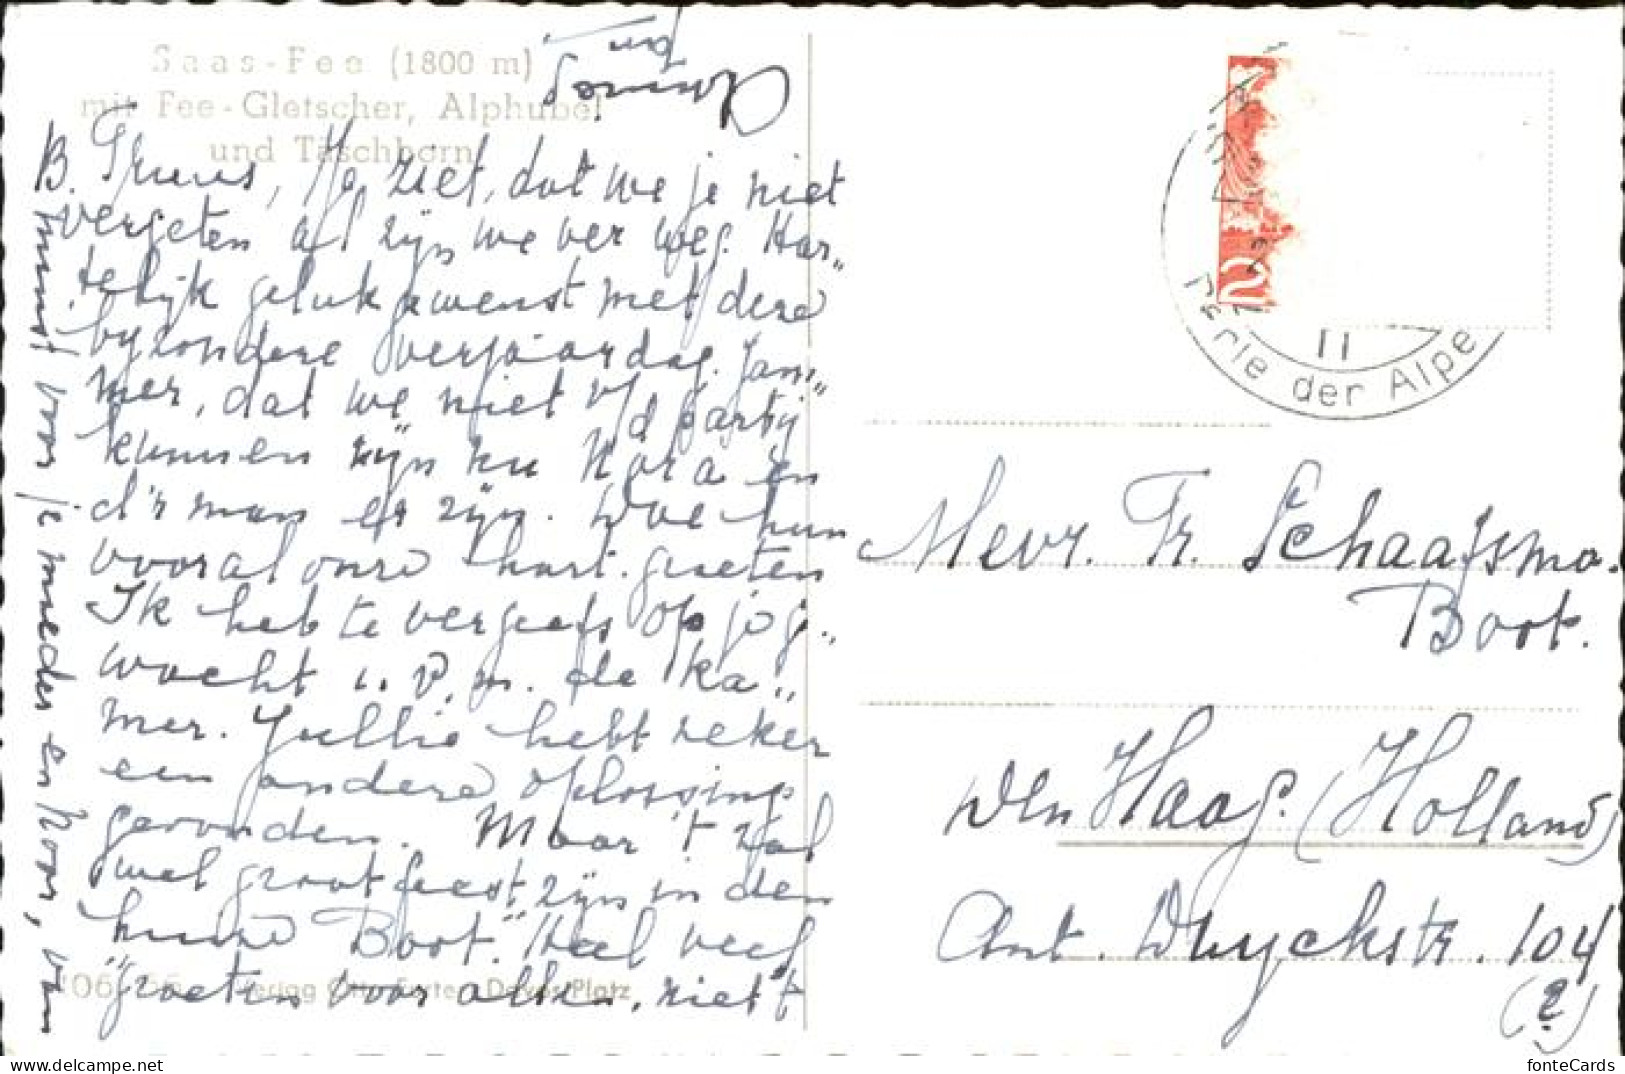 Saas-Fee (1800 m)
mit Fee-Gletscher, Alphubel
und Täschhorn
B. Truus, Je ziet, dat we je niet
vergeten al zijn we ver weg. Har„
telijk geluk gewenst met deze
byzondere verjaardag. Jam„
mer, dat we niet v/d partij
kunnen zijn nu Nora en
d'r man er zijn. Doe hun
vooral onze hart. groeten
Ik heb te vergeefs op je ge„
wacht i.v.m. de ka„
mer. Jullie hebt zeker
een andere oplossing
gevonden. Maar 't zal
wel groot feest zijn in den
huize Boot." Heel veel
groeten voor allen, niet 't
minst voor je moeder en Noor, van
Verlag Otto Furter, Davos-Platz
II
Perle der Alpe
Mevr. Tr. Schaafsma.
Boot.
Den Haag. (Holland)
Ant. Duyckstr. 104
(?)
fonteCards